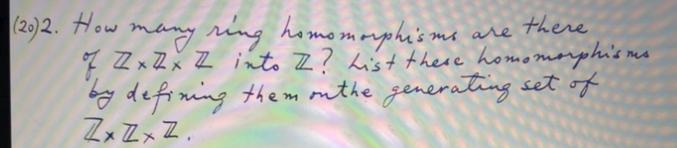 (20)2. How many ring homomorphisms are there
of ℤ×ℤ×ℤ into ℤ? List these homomorphisms
by defining them on the generating set of
ℤ×ℤ×ℤ.